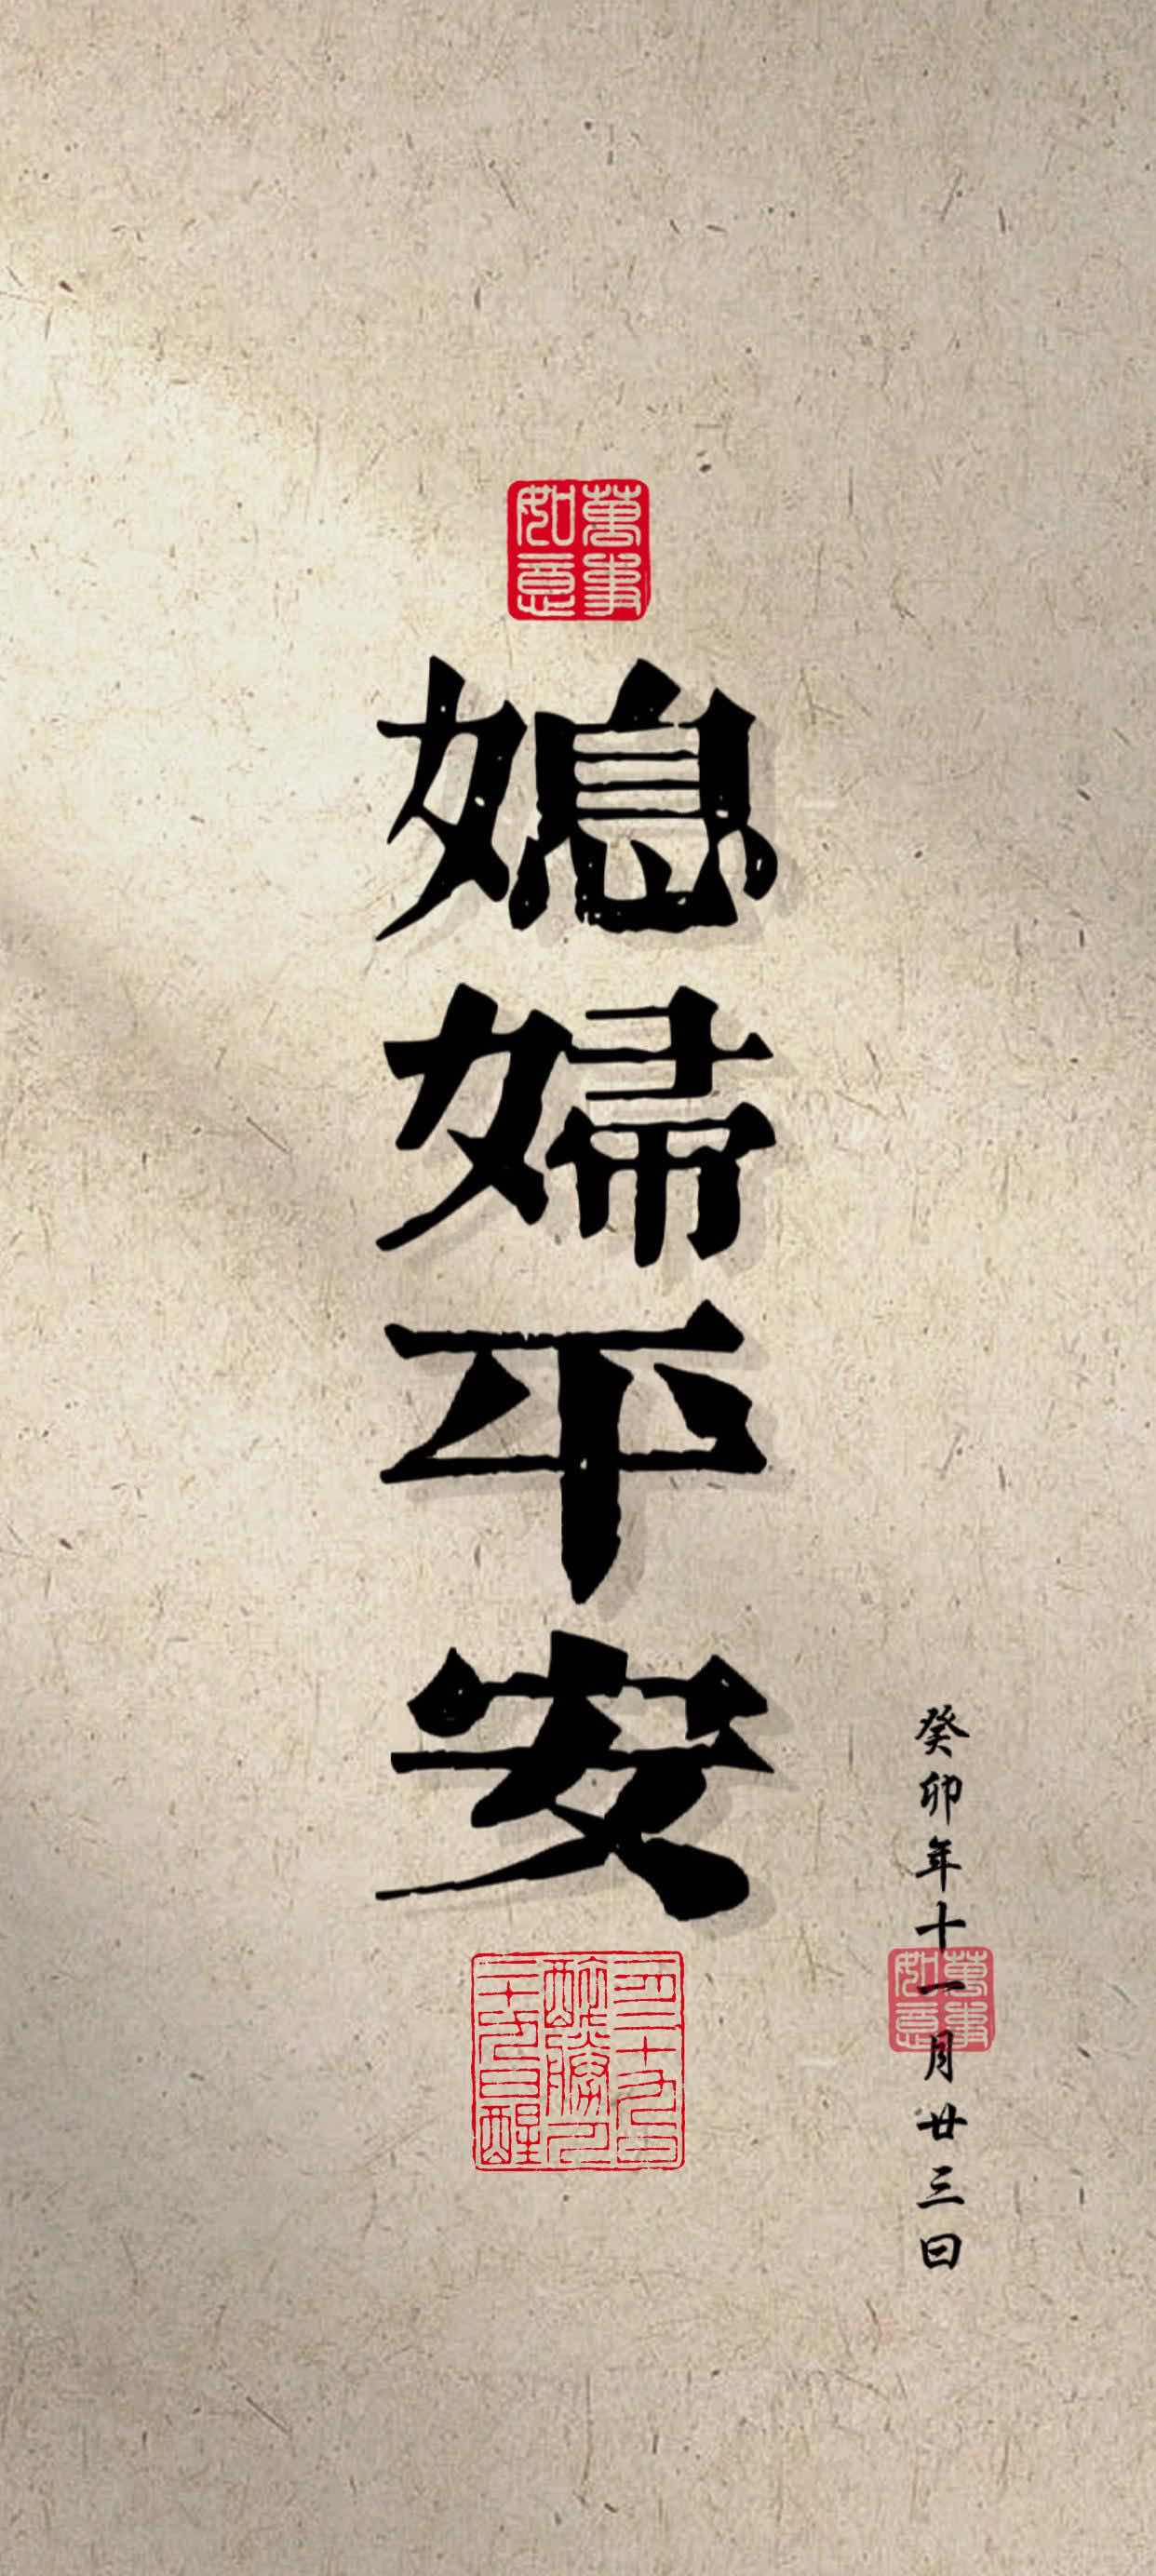 萬事
如意
媳婦平安
癸卯年十一月廿三日
萬事
如意